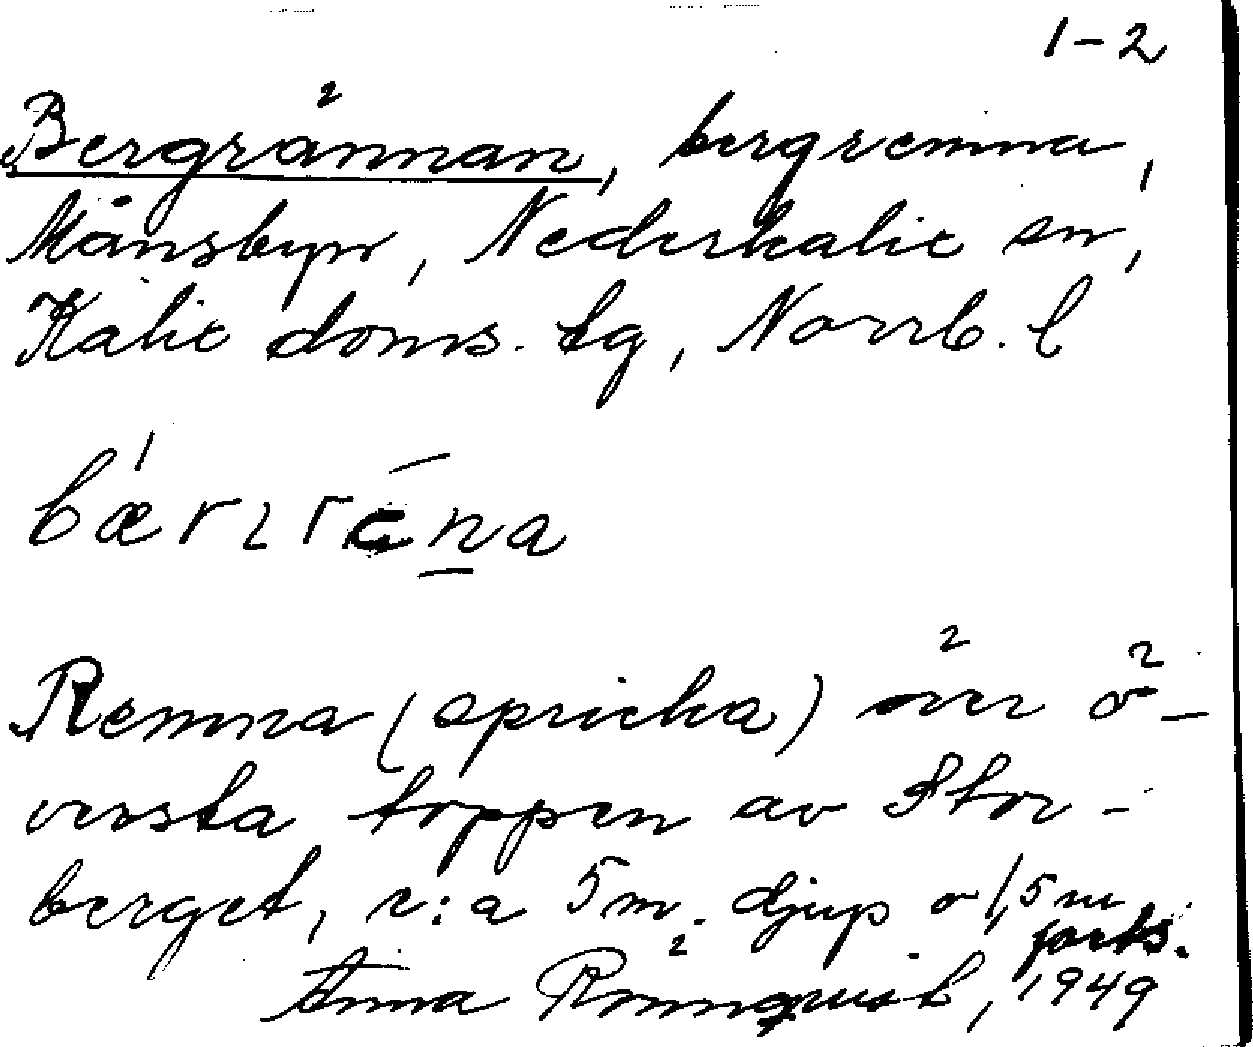 1-2
Bergrännan, bergremna,
Månsbyn, Nederkalix sn,
Kalix doms. tg, Norrb. l
Remna (spricka) över ö-
versta toppen av Stor-
berget, c:a 5 m. djup o 1,5 m
forts.
Anna Rönnqvist, 1949